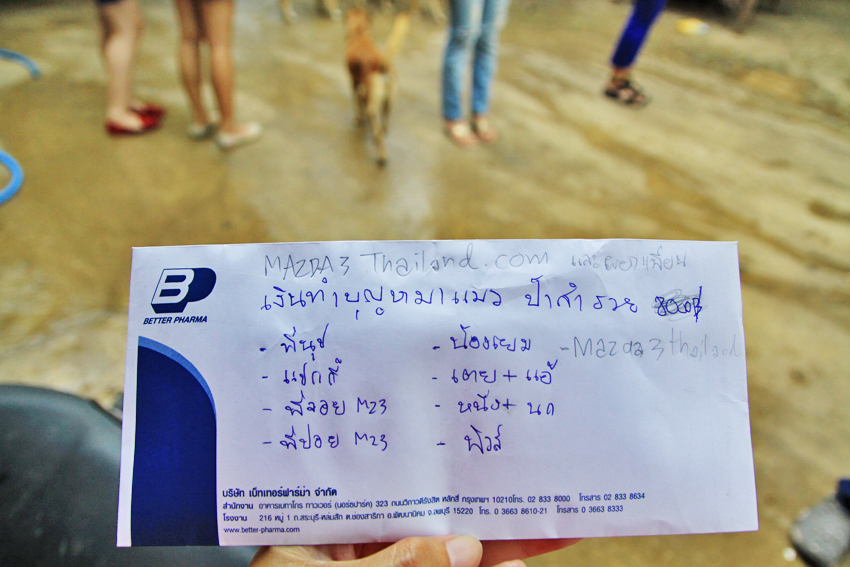 MAZDA3 Thailand.com และผองเพื่อน
เงินทำบุญหมาแมว ป้าสำรวย
B
BETTER PHARMA
- พี่นุช
- น้องแยม
- Mazda3thailand
- แชกกี้
- เตย + แอ้
- พี่จอย M23
- หนึ่ง + นก
- พี่ปอย M23
- พิวส์
บริษัท เบ็ทเทอร์ฟาร์ม่า จำกัด
สำนักงาน อาคารเบทาโกร ทาวเวอร์ (นอร์ธปาร์ค) 323 ถนนวิภาวดีรังสิต หลักสี่ กรุงเทพฯ 10210โทร. 02 833 8000 โทรสาร 02 833 8634
โรงงาน 216 หมู่ 1 ถ.สระบุรี-หล่มสัก ต.ช่องสาริกา อ.พัฒนานิคม จ.ลพบุรี 15220 โทร. 0 3663 8610-21 โทรสาร 0 3663 8333
www.better-pharma.com